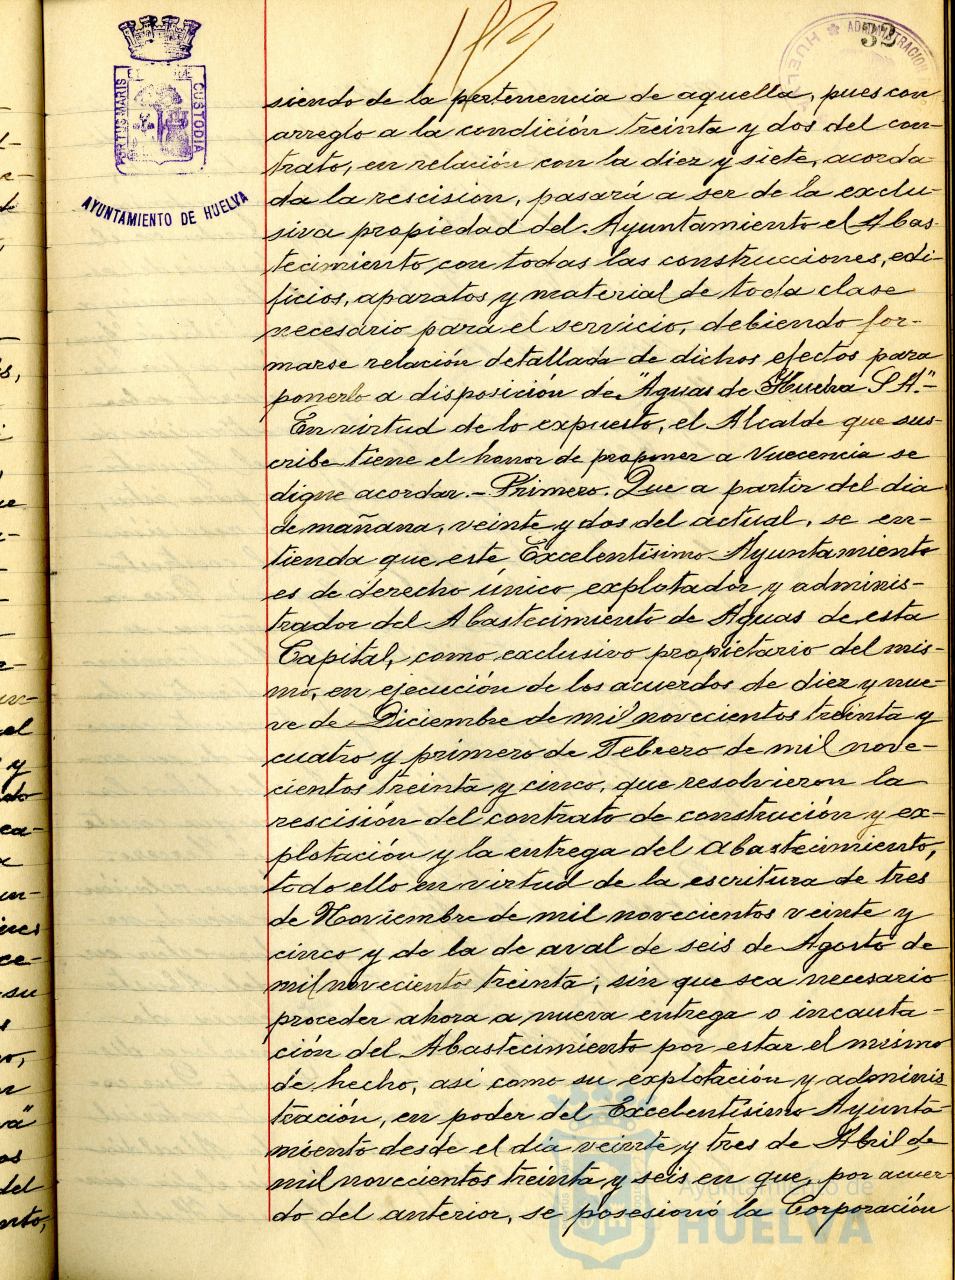 183
33
ADMINISTRACION
HUEL
PORTUS MARIS
CUSTODIA
AYUNTAMIENTO DE HUELVA
siendo de la pertenencia de aquella, pues con
arreglo a la condición treinta y dos del con-
trato, en relación con la diez y siete, acorda
da la rescision, pasará a ser de la exclu-
siva propiedad del Ayuntamiento el Abas-
tecimiento con todas las construcciones, edi-
ficios, aparatos y material de toda clase
necesario para el servicio, debiendo for-
marse relación detallada de dichos efectos para
ponerlo a disposición de "Aguas de Huelva S A."-
En virtud de lo expuesto, el Alcalde que sus-
cribe tiene el honor de proponer a Vuecencia se
digne acordar.- Primero. Que a partir del dia
de mañana, veinte y dos del actual, se en-
tienda que este Excelentísimo Ayuntamiento
es de derecho único explotador y adminis-
trador del Abastecimiento de Aguas de esta
Capital, como exclusivo propietario del mis-
mo, en ejecución de los acuerdos de diez y nue-
ve de Diciembre de mil novecientos treinta y
cuatro y primero de Febrero de mil nove-
cientos treinta y cinco, que resolvieron la
rescisión del contrato de construción y ex-
plotación y la entrega del abastecimiento,
todo ello en virtud de la escritura de tres
de Noviembre de mil novecientos veinte y
cinco y de la de aval de seis de Agosto de
mil novecientos treinta; sin que sea necesario
proceder ahora a nueva entrega o incauta-
ción del Abastecimiento por estar el mismo
de hecho, así como su explotación y adminis
tración, en poder del Excelentísimo Ayunta-
miento desde el día veinte y tres de Abril de
mil novecientos treinta y seis en que, por acuer-
do del anterior, se posesionó la Corporación
Ayuntamiento de
HUELVA